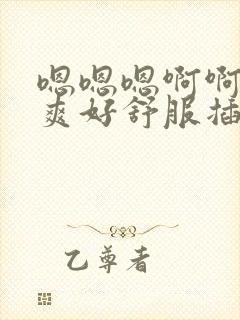 嗯嗯嗯啊啊
爽好舒服插
乙尊者